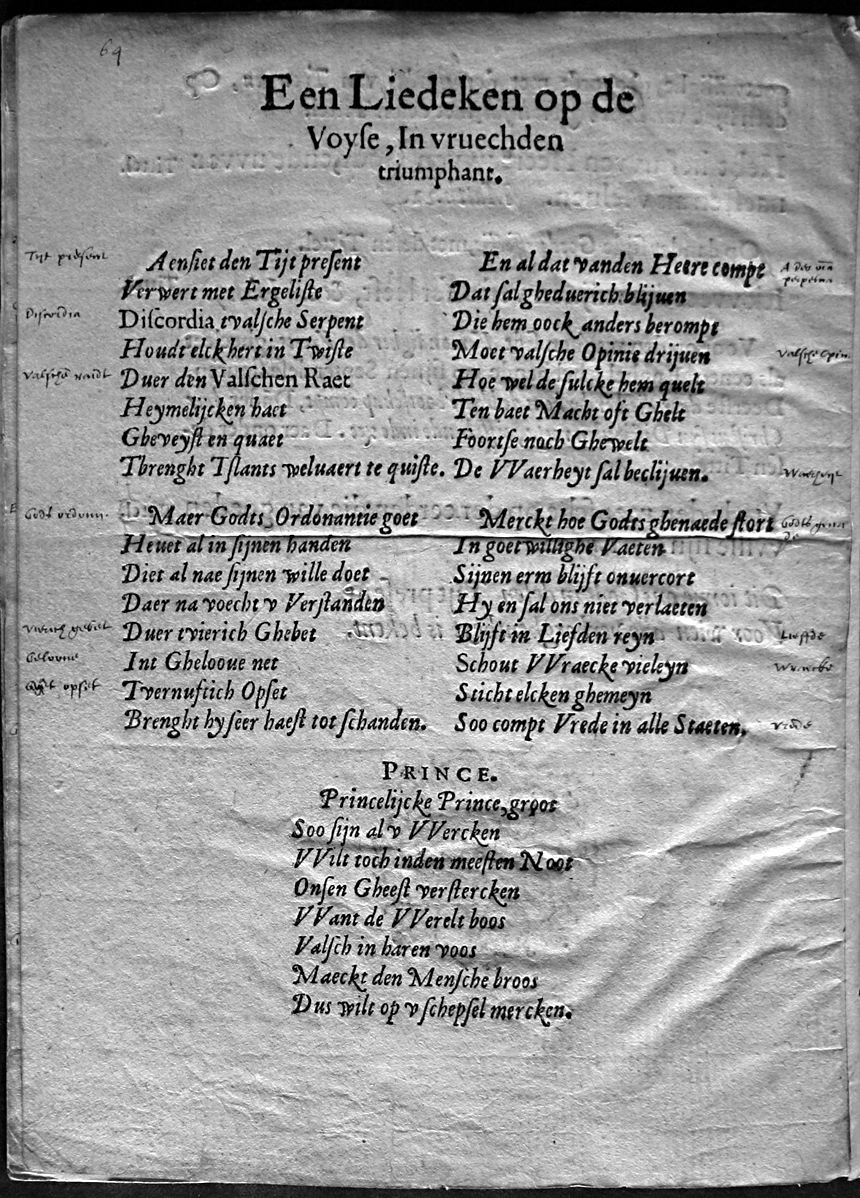 64
Een Liedeken op de
Voyſe, In vruechden
triumphant.
Tijt preſent
Aenſiet den Tijt preſent
Verwert met Ergeliſte
Discordia
Diſcordia tvalſche Serpent
Houdt elck hert in Twiſte
Valſche raidt
Duer den Valſchen Raet
Heymelijcken haet
Gheveyſt en quaet
Tbrenght Tſlants weluaert te quiſte.
Godts ordonn.
Maer Godts Ordonantie goet
Heuet al in ſijnen handen
Diet al nae ſijnen wille doet
Daer na voecht v Verſtanden
vierich gebet
Duer tvierich Ghebet
Geloove
Int Ghelooue net
opſet
Tvernuftich Opſet
Brenght hy ſeer haeſt tot ſchanden.
En al dat vanden Heere compt
Dat ſal gheduerich blijuen
Die hem oock anders berompt
Moet valſche Opinie drijuen
Valſche Opin.
Hoe wel de ſulcke hem quelt
Ten baet Macht oft Ghelt
Foortſe noch Ghewelt
De VVaerheyt ſal beclijuen.
Waerheyt
Merckt hoe Godts ghenaede ſtort
Godts gena
de
In goet willighe Vaeten
Sijnen erm blijft onuercort
Hy en ſal ons niet verlaeten
Blijft in Liefden reyn
Lieffde
Schout VVraecke vieleyn
Wraecke
Sticht elcken ghemeyn
Soo compt Vrede in alle Staeten.
vrede
PRINCE.
Princelijcke Prince, groot
Soo ſijn al v VVercken
VVilt toch inden meeſten Noot
Onſen Gheeſt verſtercken
VVant de VVerelt boos
Valſch in haren voos
Maeckt den Menſche broos
Dus wilt op v ſchepſel mercken.